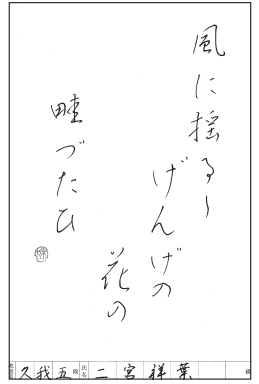 風に揺るゝ
げんげの
花の
畦づたひ
久我 五 段 氏名 二宮祥葉 様